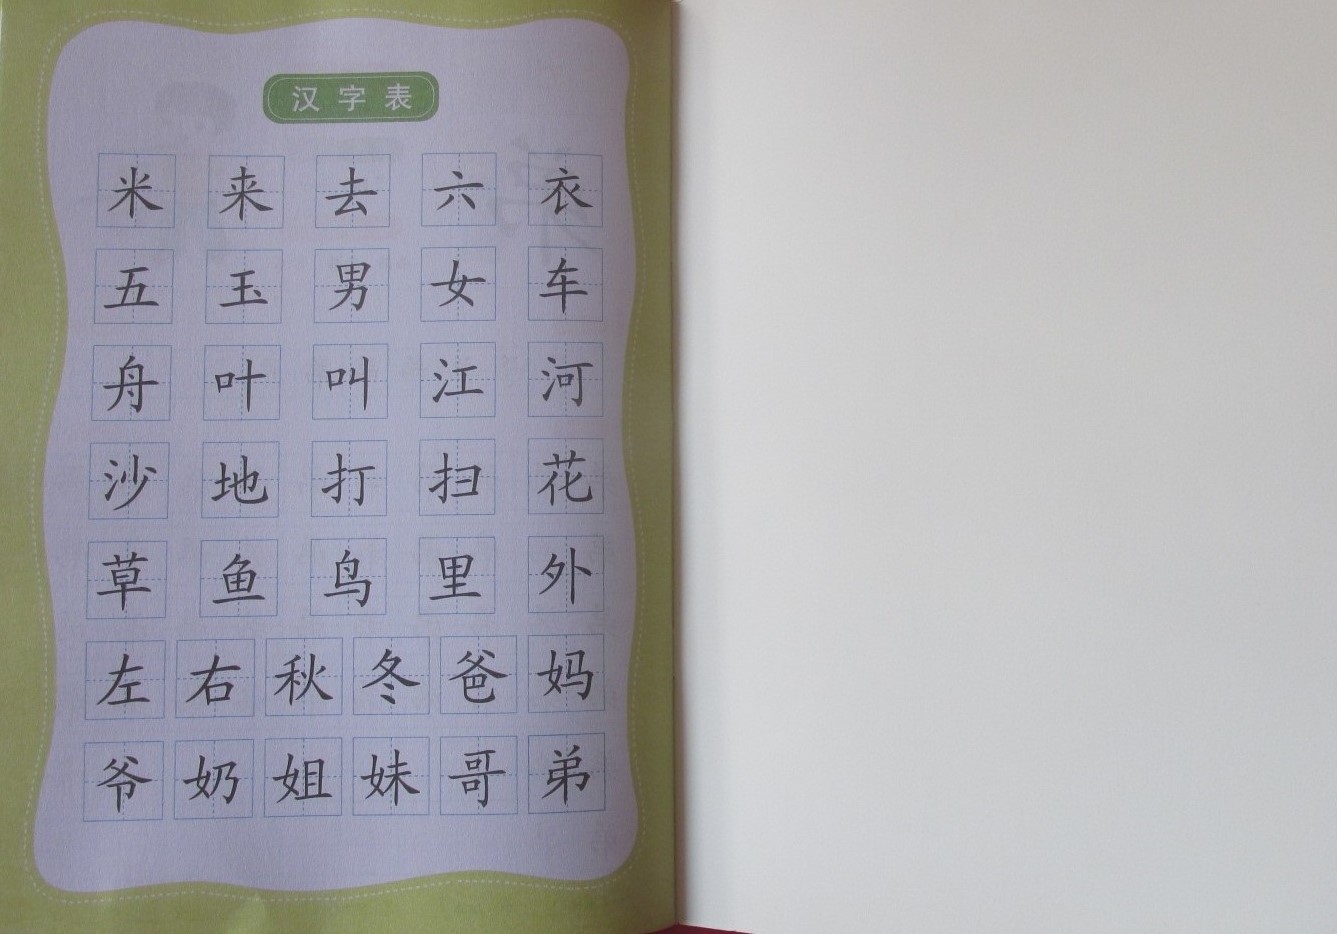 汉字表
米 来 去 六 衣
五 玉 男 女 车
舟 叶 叫 江 河
沙 地 打 扫 花
草 鱼 鸟 里 外
左 右 秋 冬 爸 妈
爷 奶 姐 妹 哥 弟